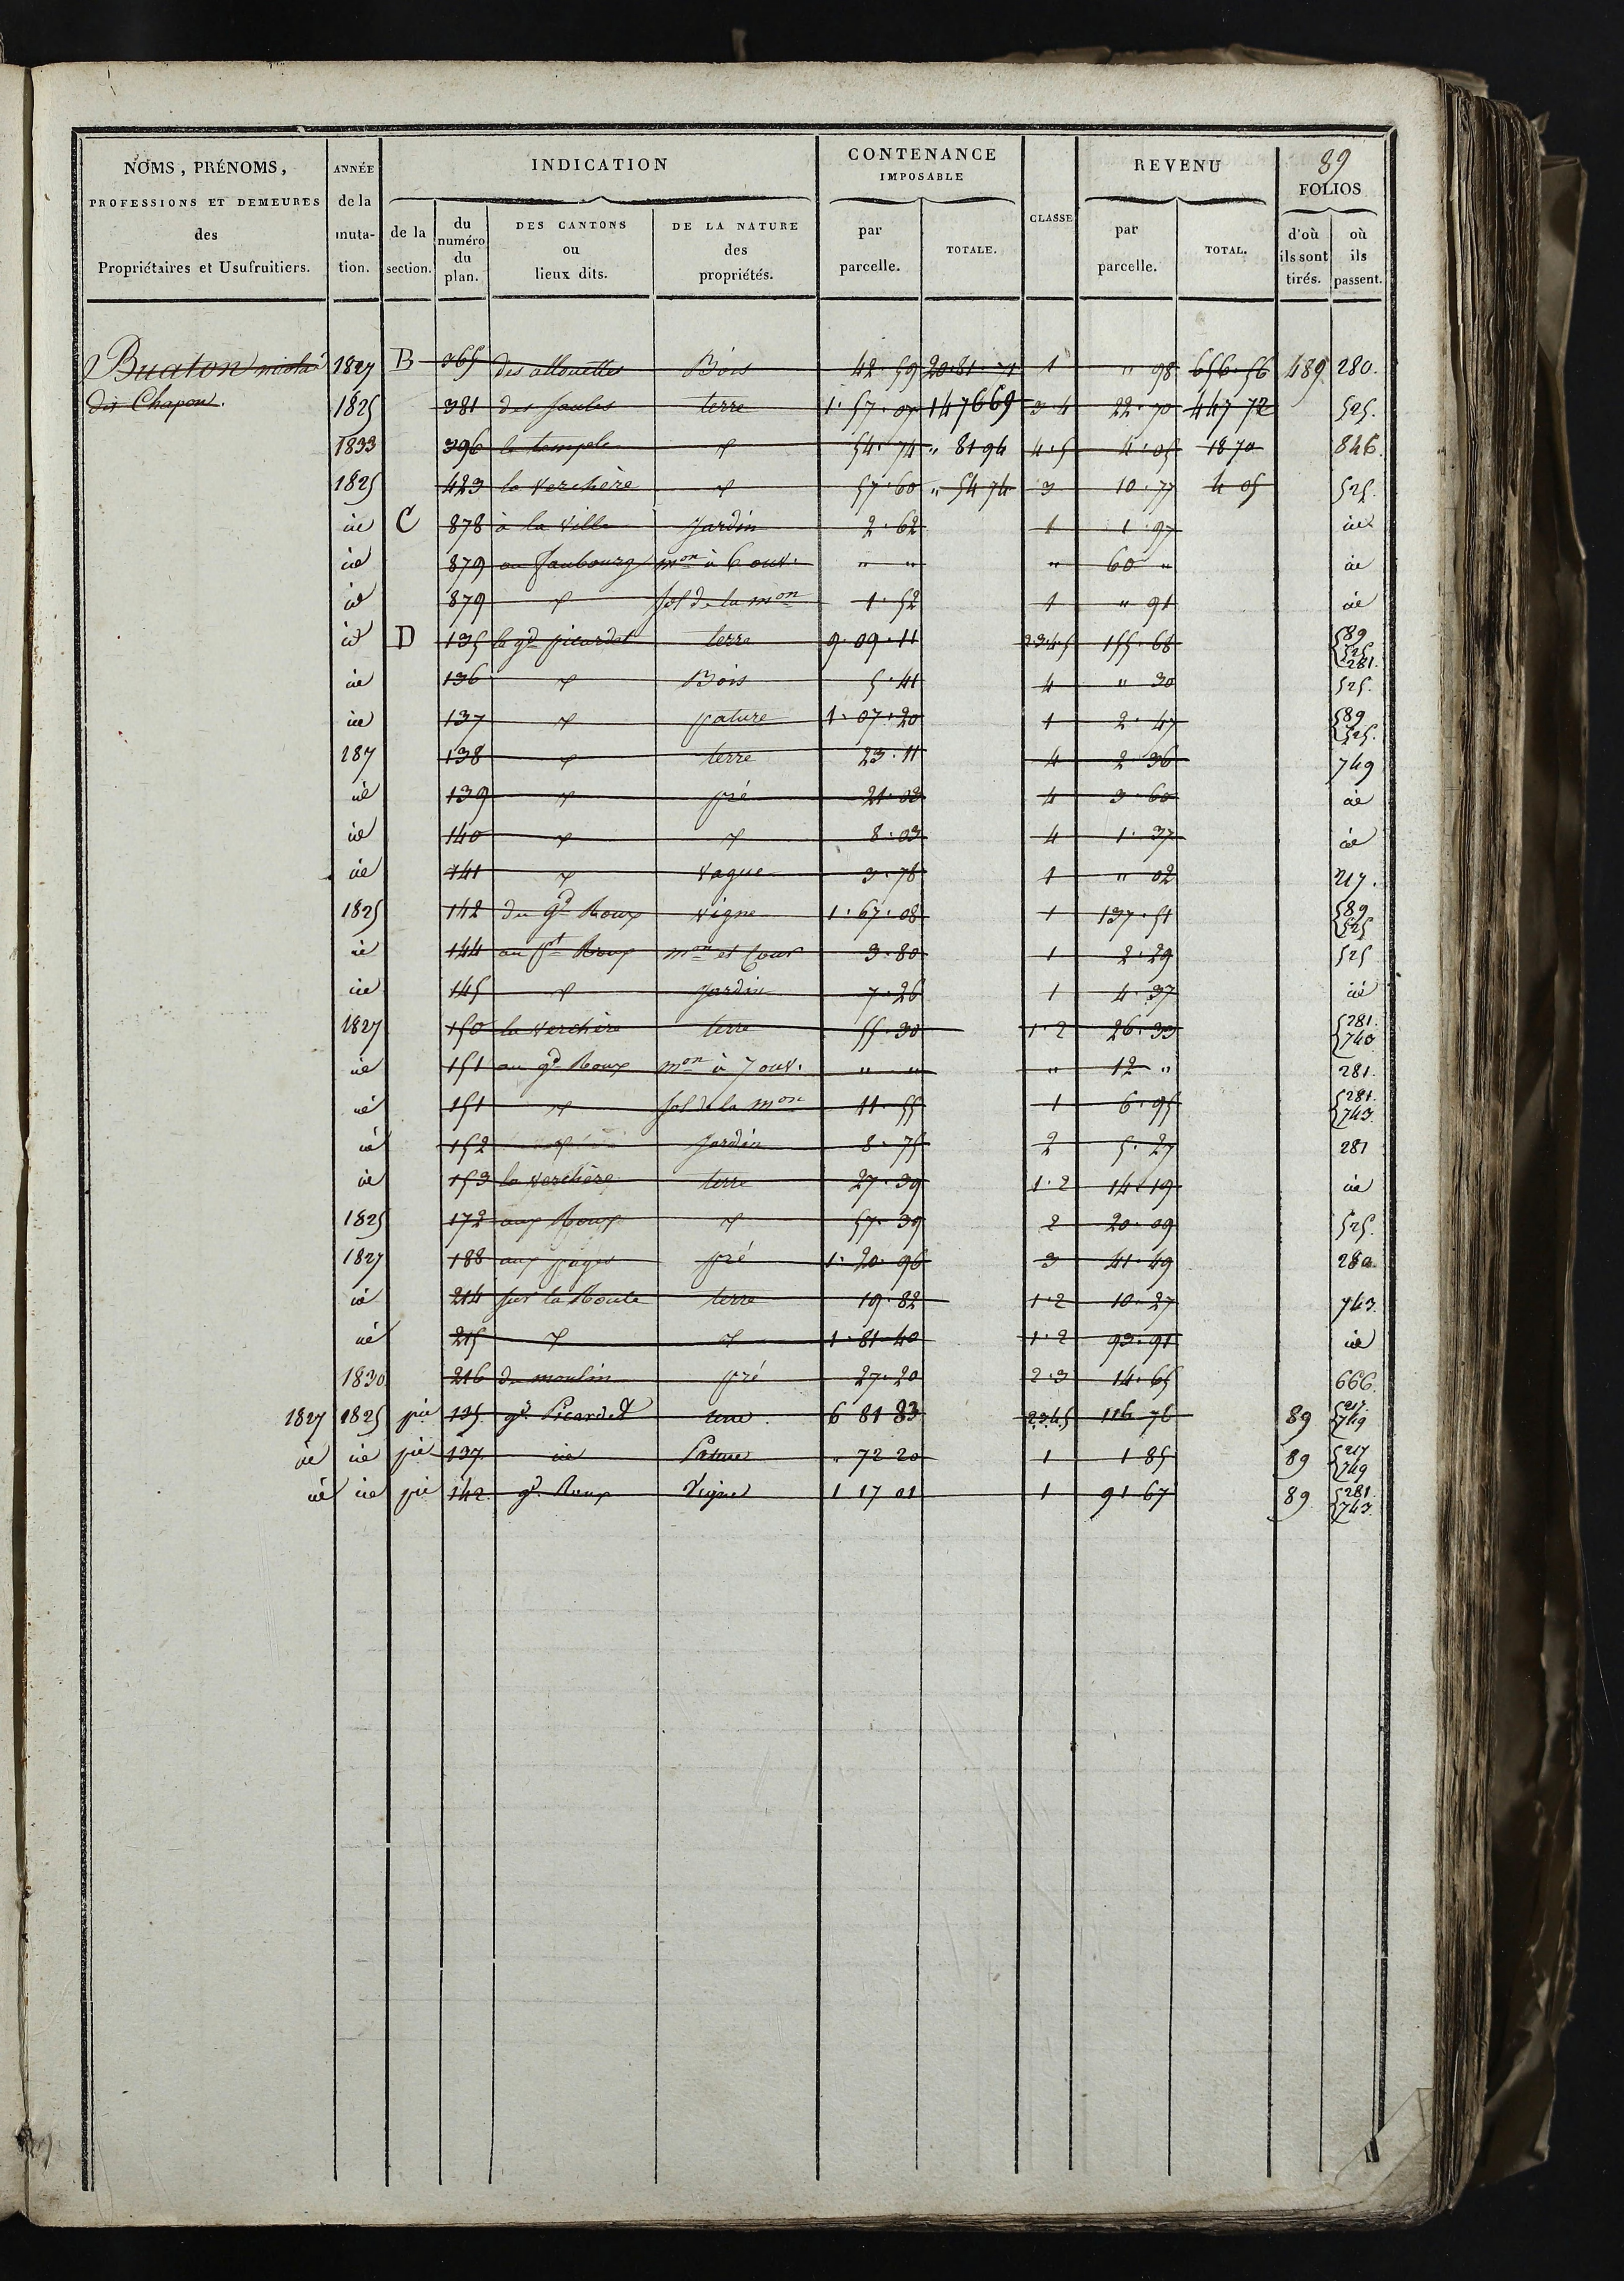 89
NOMS, PRÉNOMS, PROFESSIONS ET DEMEURES des Propriétaires et Usufruitiers. ANNÉE de la mutation. INDICATION de la section. du numéro du plan. DES CANTONS ou lieux dits. DE LA NATURE des propriétés. CONTENANCE IMPOSABLE par parcelle. TOTALE. CLASSE REVENU par parcelle. TOTAL. FOLIOS d'où ils sont tirés. où ils passent.
Buaton 1827 B 365 des allouettes Bois 42·59 20·81·71 1 " 98 656·56 489 280.
dit Chapon. 1825 381 des saules terre 1·57·07 147669 3·4 22·70 447 72 525.
1833 396 le temple d 54·74 " 8194 4·5 4·05 1870 846.
1825 423 la Verchère d 57·60 " 5474 3 10·77 4 05 525.
id C 878 à la Ville Jardin 2·62 1 1·97 id
id 879 au faubourg mon à 6 ouv. " " " 60 " id
id 879 d sol de la mon 1·52 1 " 91 id
id D 135 le gd picardet terre 9·09·11 2·3·4·5 155·68 89 525 281.
id 136 d Bois 5·41 4 " 30 525.
id 137 d pature 1·07·20 1 2·47 89 525.
187 138 d terre 23·11 4 2 36 749
id 139 d pré 21·03 4 3·60 id
id 140 d d 8·03 4 1·37 id
id 141 d Vague 3·78 1 " 02 217.
1825 142 du gd Roux Vigne 1·67·08 1 137·51 89 525
id 144 au pt Roux mon et Cour 3·80 1 2·29 525
id 145 d Jardin 7·26 1 4·37 id
1827 150 la Verchère terre 55·30 1·2 26·33 281. 743
id 151 au gd Roux mon à 7 ouv. " " " 12 " 281.
id 151 d sol de la mon 11·55 1 6·95 281. 743.
id 152 d Jardin 8·75 2 5·27 281
id 153 la Verchère terre 27·39 1·2 14·19 id
1825 172 aux Roux d 57·39 2 20·09 525.
1827 188 aux pré 1·20·96 3 41·49 280.
id 214 sur la Route terre 19·82 1·2 10·27 743.
id 215 d d 1·81·40 1·2 93·91 id
1830. 216 du moulin pré 27·20 2·3 14·65 666.
1827 1825 pie 135. gd Picardet terre. 6 81 83 2345 116 76 89 217. 749
id id pie 137. id Pature " 72 20 1 1 85 89 217 749
id id pie 142. gd Roux Vigne 1 17 01 1 91 67 89 281. 743.